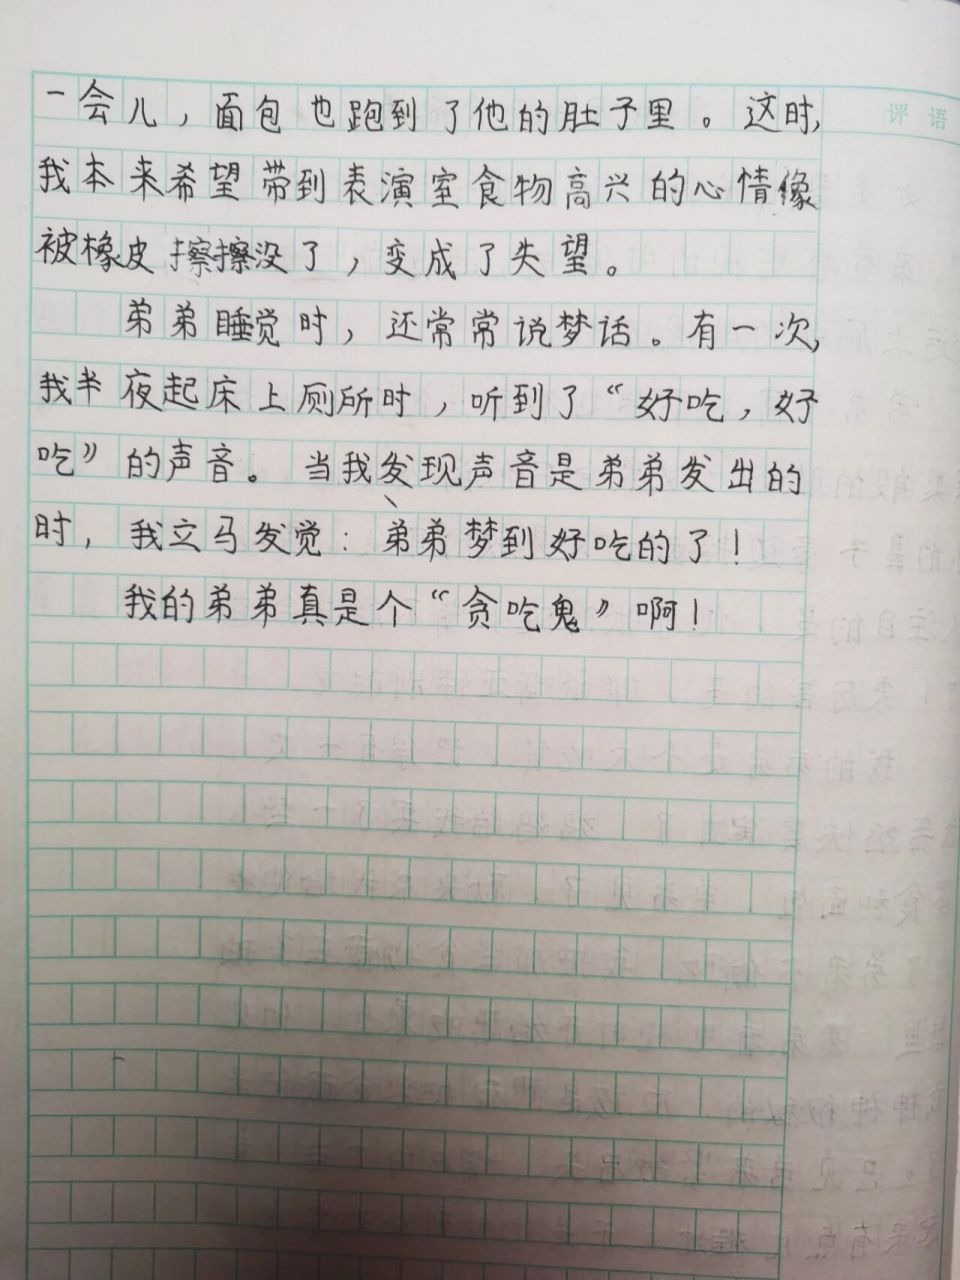 评语
一会儿，面包也跑到了他的肚子里。这时，
我本来希望带到表演室食物高兴的心情像
被橡皮擦擦没了，变成了失望。
弟弟睡觉时，还常常说梦话。有一次，
我半夜起床上厕所时，听到了“好吃，好
吃”的声音。当我发现声音是弟弟发出的
时，我立马发觉：弟弟梦到好吃的了！
我的弟弟真是个“贪吃鬼”啊！